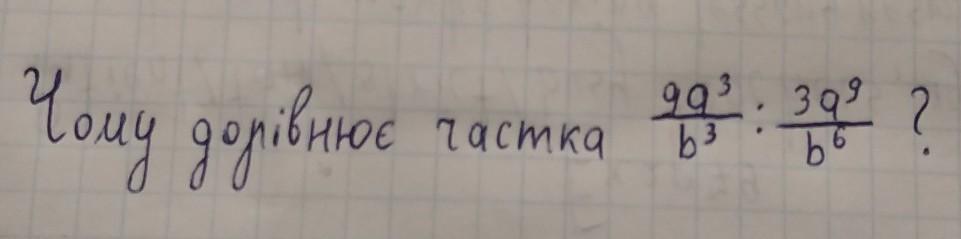 Чому дорівнює частка $\frac{9a^3}{b^3} : \frac{3a^9}{b^6}$ ?